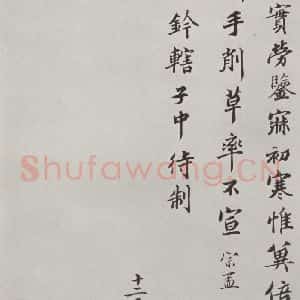 實勞鑒寐初寒惟冀倍
手削草率不宣 宗孟
鈐轄子中待制
十二
Shufawang.CN